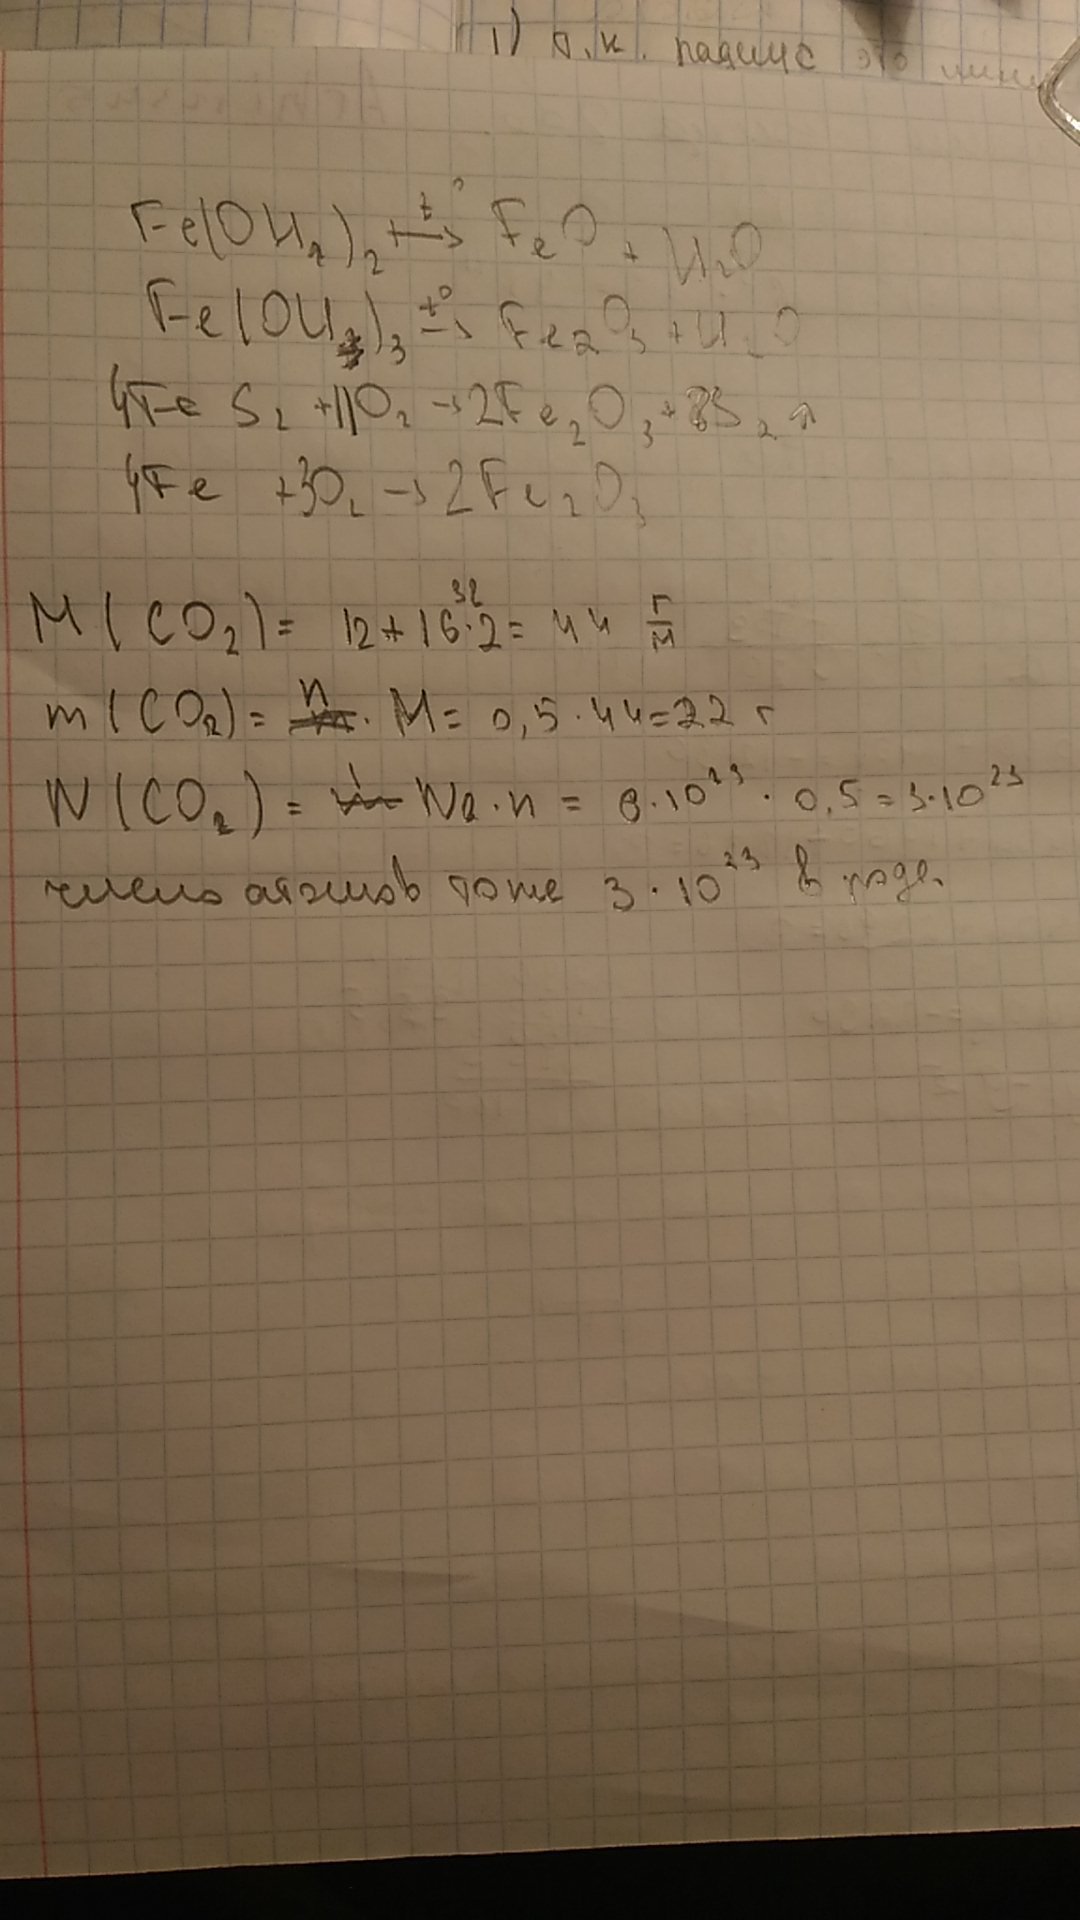 1) т.к. радиус это
Fe(OH₂)₂ t°→ FeO + H₂O
Fe(OH)₃ t°→ Fe₂O₃ + H₂O
4FeS₂ + 11O₂ → 2Fe₂O₃ + 8S₂ ↑
4Fe + 3O₂ → 2Fe₂O₃
32
M(CO₂) = 12 + 16·2 = 44 г/м
m(CO₂) = n · M = 0,5 · 44 = 22 г
N(CO₂) = Na · n = 6·10²³ · 0,5 = 3·10²³
число атомов тоже 3·10²³ вроде.